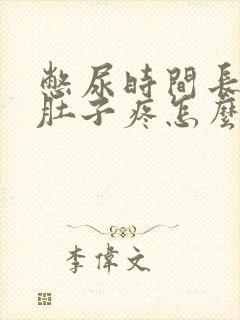 憋尿時間長
肚子疼怎麼
李偉文